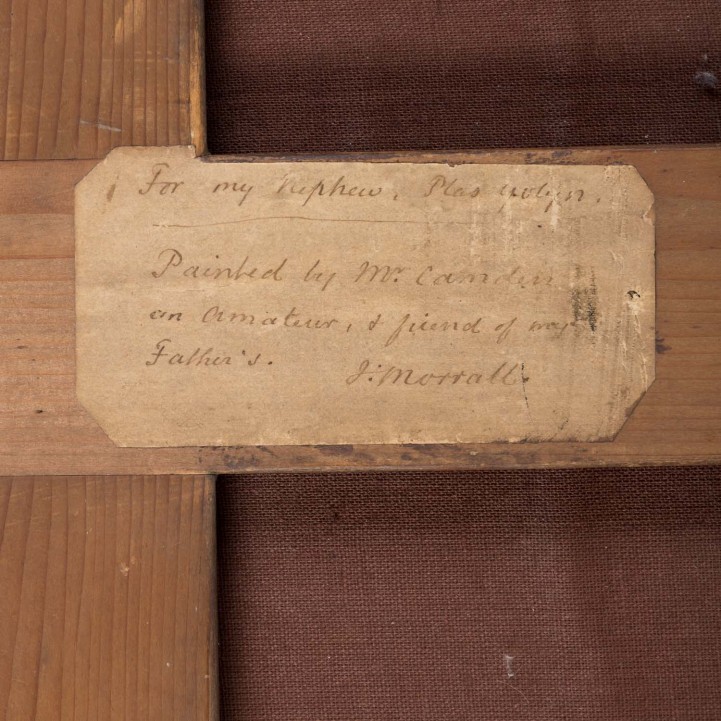 For my Nephew. Plas yolyn.
Painted by Mr. Camden
an Amateur, & friend of my
Father's. J: Morrall.